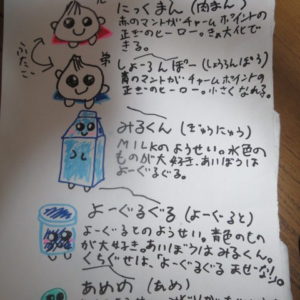 にっくまん (肉まん)
赤のマントがチャームポイントの
正ぎのヒーロー。きょ大化で
きる。
ふたご
弟
しょーろんぽー (しょうろんぽう)
青のマントがチャームポイントの
正ぎのヒーロー。小さくなれる。
みるくん (ぎゅうにゅう)
MILKのようせい。水色の
ものが大好き。あいぼうは
よーぐるぐる。
よーぐるぐる (よーぐると)
よーぐるとのようせい。青色のもの
が大好き。あいぼうはみるくん。
くちぐせは、「よーぐるぐる まぜ
あめめ (あめ)